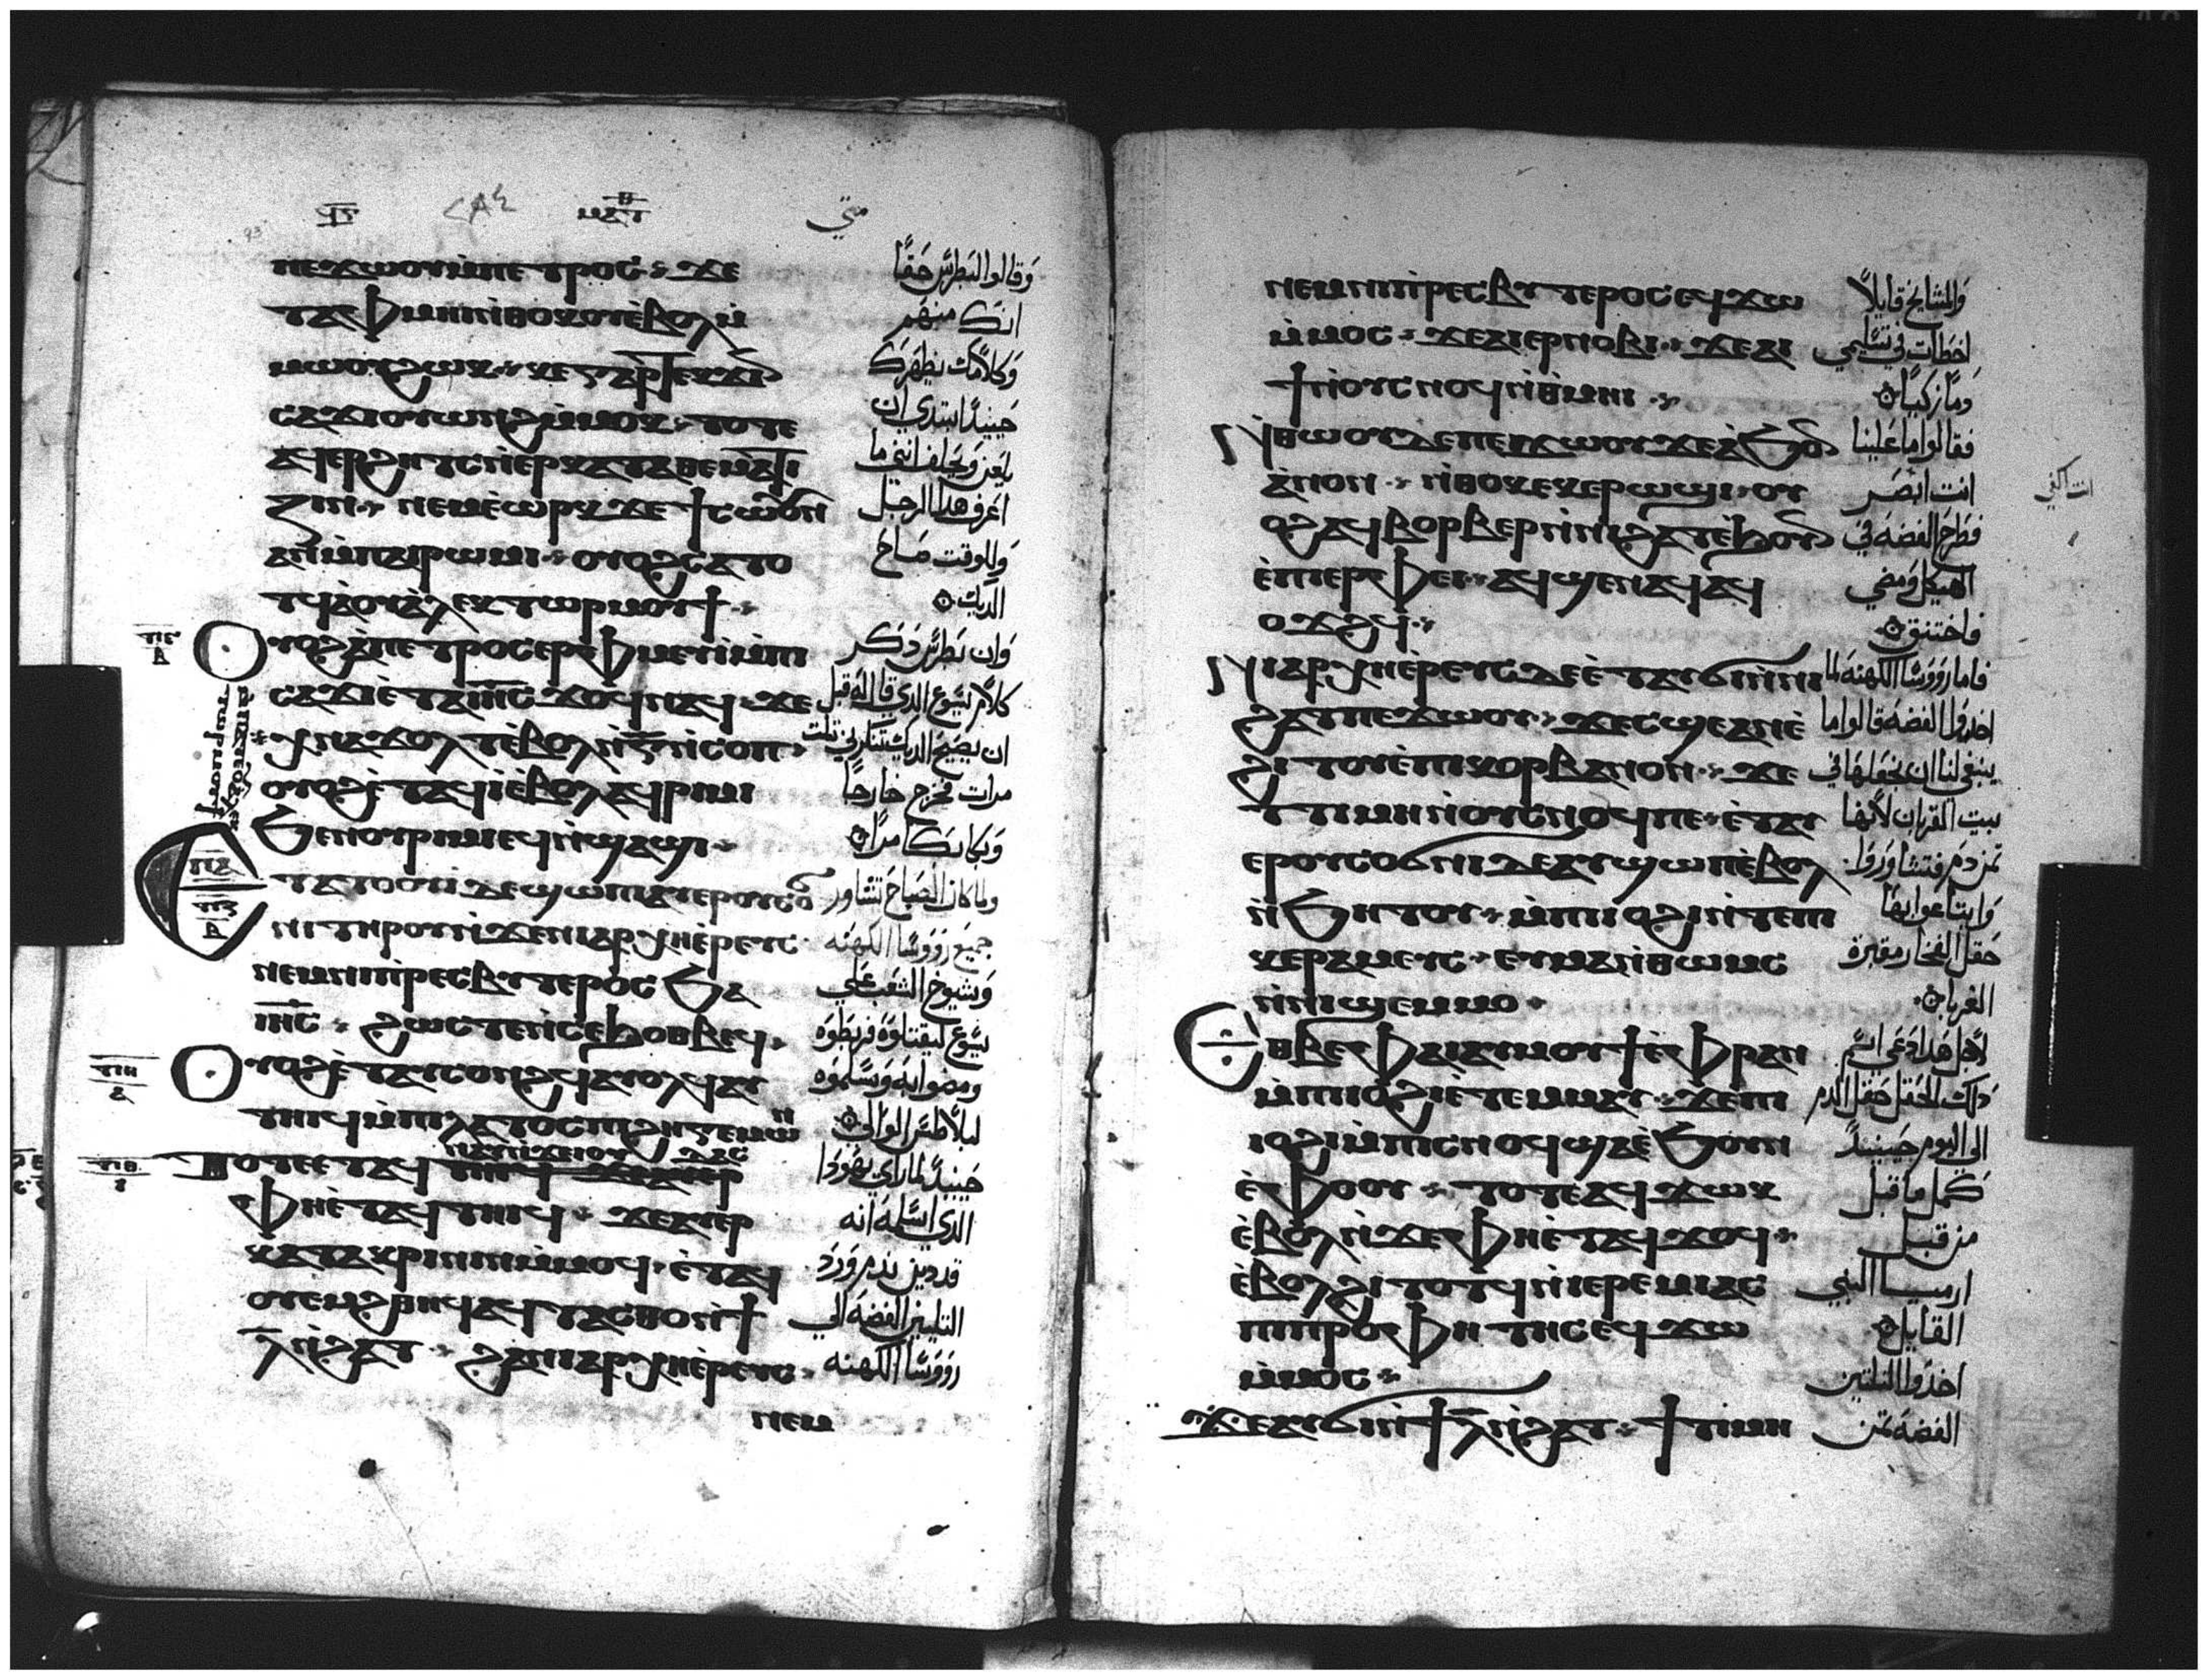 ϥⲋ
ⲙⲁⲧⲑ
متي
ⲡⲉϫⲱⲟⲩⲙ̀ⲡⲉⲧⲣⲟⲥ ϫⲉ
ⲧⲁⲫⲙⲏⲓⲛ̀ⲑⲟⲕⲟⲩⲉ̀ⲃⲟⲗⲙ̀
ⲙⲱⲟⲩϩⲱⲕ ⲕⲉⲅⲁⲣⲡⲉⲕϫⲓⲛ
ⲥⲁϫⲓⲟⲩⲱⲛϩⲙ̀ⲙⲟⲕ ⲧⲟⲧⲉ
ⲁϥⲉⲣϩⲏⲧⲥⲛ̀ⲉⲣⲕⲁⲧⲁⲑⲉⲙⲁ
ⲍⲓⲛ ⲛⲉⲙⲉ̀ⲱⲣⲕ ϫⲉ ϯⲥⲱⲟⲩⲛ
ⲁⲛⲙ̀ⲡⲁⲓⲣⲱⲙⲓ ⲟⲩⲟϩⲥⲁⲧⲟ
ⲧϥⲁ̀ⲟⲩⲁ̀ⲗⲉⲕⲧⲱⲣⲙⲟⲩϯ
ⲟⲩⲟϩⲁ̀ⲡⲉⲧⲣⲟⲥⲉⲣⲫⲙⲉⲩⲓ̀ⲙ̀ⲡⲓ
ⲥⲁϫⲓⲉ̀ⲧⲁⲓⲏⲥ ϫⲟϥⲛⲁϥ ϫⲉ
ⲭⲛⲁϫⲟⲗⲧⲉ̀ⲃⲟⲗⲛ̀ⲅ̅ⲛ̀ⲥⲟⲡ
ⲟⲩⲟϩⲉ̀ⲧⲁϥⲓ̀ⲉ̀ⲃⲟⲗⲁϥⲣⲓⲙⲓ
ϧⲉⲛⲟⲩⲣⲓⲙⲓⲉϥⲛ̀ϣⲁϣⲓ
ⲉⲧⲁⲧⲟⲟⲩⲓ̀ ⲇⲉϣⲱⲡⲓⲁⲩⲉⲣⲟⲩⲥⲟϭ
ⲛⲓⲧⲏⲣⲟⲩⲛ̀ϫⲉⲛⲓⲁⲣⲭⲏⲉ̀ⲣⲉⲩⲥ
ⲛⲉⲙⲛⲓⲡⲣⲉⲥⲃⲩⲧⲉⲣⲟⲥ ϧⲁ
ⲓⲏⲥ ϩⲱⲥⲧⲉⲛ̀ⲥⲉϧⲟⲑⲃⲉϥ
ⲟⲩⲟϩⲉ̀ⲧⲁⲩⲥⲟⲛϩϥⲁⲩⲟⲗϥⲁⲩ
ⲧⲏⲓϥⲙ̀ⲡⲓⲗⲁⲧⲟⲥⲡⲓϩⲏⲅⲉⲙⲱⲛ
ⲧⲟⲧⲉⲉ̀ⲧⲁϥⲛⲁⲩⲛ̀ϫⲉⲓⲟⲩⲇⲁⲥ
ⲫⲏⲉ̀ⲧⲁϥⲧⲏⲓϥ ϫⲉⲁⲩⲉⲣ
ⲕⲁⲧⲁⲕⲣⲓⲛⲓⲛⲙ̀ⲙⲟϥ ⲉ̀ⲧⲁϥ
ⲟⲩⲉⲙϩⲑⲏϥⲁϥⲧⲁⲥⲑⲟⲛ̀ϯ
ⲗ̅ⲛ̀ϩⲁⲧ ϩⲁⲛⲓⲁⲣⲭⲏⲉ̀ⲣⲉⲩⲥ
ⲛⲉⲙ
وقالوا لبطرس حقًا
انك منهم
وكلامك يظهرك
حينيدًا ابتدي ان
يلعن ويحلف انني ما
اعرف هذا الرجل
وللوقت صاح
الديك
وان بطرس ذكر
كلام يسوع الدي قاله قبل
ان يصيح الديك تنكرني ثلت
مرات فخرج خارجًا
وبكا بكا مرًا
ولما كان الصباح تشاور
جميع رووسا الكهنه
وشيوخ الشعب علي
يسوع ليقتلوه فربطوه
ومضوا به وسلموه
لبلاطس الوالي
حينيدً لما راي يهودا
الدي اسلمه انه
قد دين ندم ورد
التلتين الفضه الي
رووسا الكهنه
ⲛⲉⲙⲛⲓⲡⲣⲉⲥⲃⲩⲧⲉⲣⲟⲥⲉϥϫⲱ
ⲙ̀ⲙⲟⲥ ϫⲉⲁⲓⲉⲣⲛⲟⲃⲓ ϫⲉⲁⲓ
ϯⲛ̀ⲟⲩⲥⲛⲟϥⲛ̀ⲑ̀ⲙⲏⲓ
ⲛ̀ⲑⲱⲟⲩⲇⲉⲡⲉϫⲱⲟⲩϫⲉⲁ̀ϧⲟⲛ
ⲁ̀ⲛⲟⲛ ⲛ̀ⲑⲟⲕⲉⲕⲉⲣⲱϣⲓ ⲟⲩ
ⲟϩⲁϥⲃⲟⲣⲃⲉⲣⲛ̀ⲛⲓϩⲁⲧⲉ̀ϧⲟⲩⲛ
ⲉ̀ⲡⲓⲉⲣⲫⲉⲓ ⲁϥϣⲉⲛⲁϥⲁϥ
ⲟϫϩϥ
ⲛⲓⲁⲣⲭⲏⲉ̀ⲣⲉⲩⲥⲇⲉⲉ̀ⲧⲁⲩϭⲓⲛ̀ⲛⲓ
ϩⲁⲧⲡⲉϫⲱⲟⲩ ϫⲉⲥϣⲉⲁⲛⲉ̀
ϩⲓⲧⲟⲩⲉ̀ⲡⲓⲕⲟⲣⲃⲁⲛⲟⲛ ϫⲉ
ⲧⲧⲓⲙⲏⲛ̀ⲟⲩⲥⲛⲟϥⲡⲉ ⲉ̀ⲧⲁⲩ
ⲉⲣⲟⲩⲥⲟϭⲛⲓⲇⲉⲁⲩϣⲱⲡⲉ̀ⲃⲟⲗ
ⲛ̀ϧⲏⲧⲟⲩ ⲙ̀ⲡⲓⲓⲟϩⲓⲛ̀ⲧⲉⲡⲓ
ⲕⲉⲣⲁⲙⲉⲩⲥ ⲉⲩⲙⲁⲛ̀ⲑⲱⲙⲥ
ⲛ̀ⲛⲓϣⲉⲙⲙⲟ
ⲉⲑⲃⲉⲫⲁⲓⲁⲩⲙⲟⲩϯⲉ̀ⲫⲣⲁⲛ
ⲙ̀ⲡⲓⲓⲟϩⲓⲉ̀ⲧⲉⲙⲙⲁⲩ ϫⲉⲡⲓ
ⲓⲟϩⲓⲙ̀ⲡⲓⲥⲛⲟϥϣⲁⲉ̀ϧⲟⲩⲛ
ⲉ̀ⲫⲟⲟⲩ ⲧⲟⲧⲉⲁϥϫⲱⲕ
ⲉ̀ⲃⲟⲗⲛ̀ϫⲉⲫⲏⲉ̀ⲧⲁϥϫⲟϥ
ⲉ̀ⲃⲟⲗϩⲓⲧⲟⲧϥⲛ̀ⲓⲉⲣⲉⲙⲓⲁⲥ
ⲡⲓⲡⲣⲟⲫⲏⲧⲏⲥⲉϥϫⲱ
ⲙ̀ⲙⲟⲥ
ϫⲉⲁⲩϭⲓⲛ̀ϯⲗ̅ⲛ̀ϩⲁⲧ ϯⲧⲓⲙⲏ
والمشايخ قايلاً
اخطات في تسليمي
دمًا زكيًا
فقالوا ما علينا
انت ابصر
فطرح الفضه في
الهيكل ومضي
فاختنق
فاما رووسا الكهنه لما
اخدوا الفضه قالوا ما
ينبغي لنا ان نجعلها في
بيت القربان لانها
تمن دم فتشاوروا
وابتاعوا بها
حقل الفخار مقبرة
الغربا
لاجل هدا دعي اسم
دلك الحقل حقل الدم
الي اليوم حينيدً
كمل ما قيل
من قبل
ارميا النبي
القايل
اخدوا التلتين
الفضه تمن